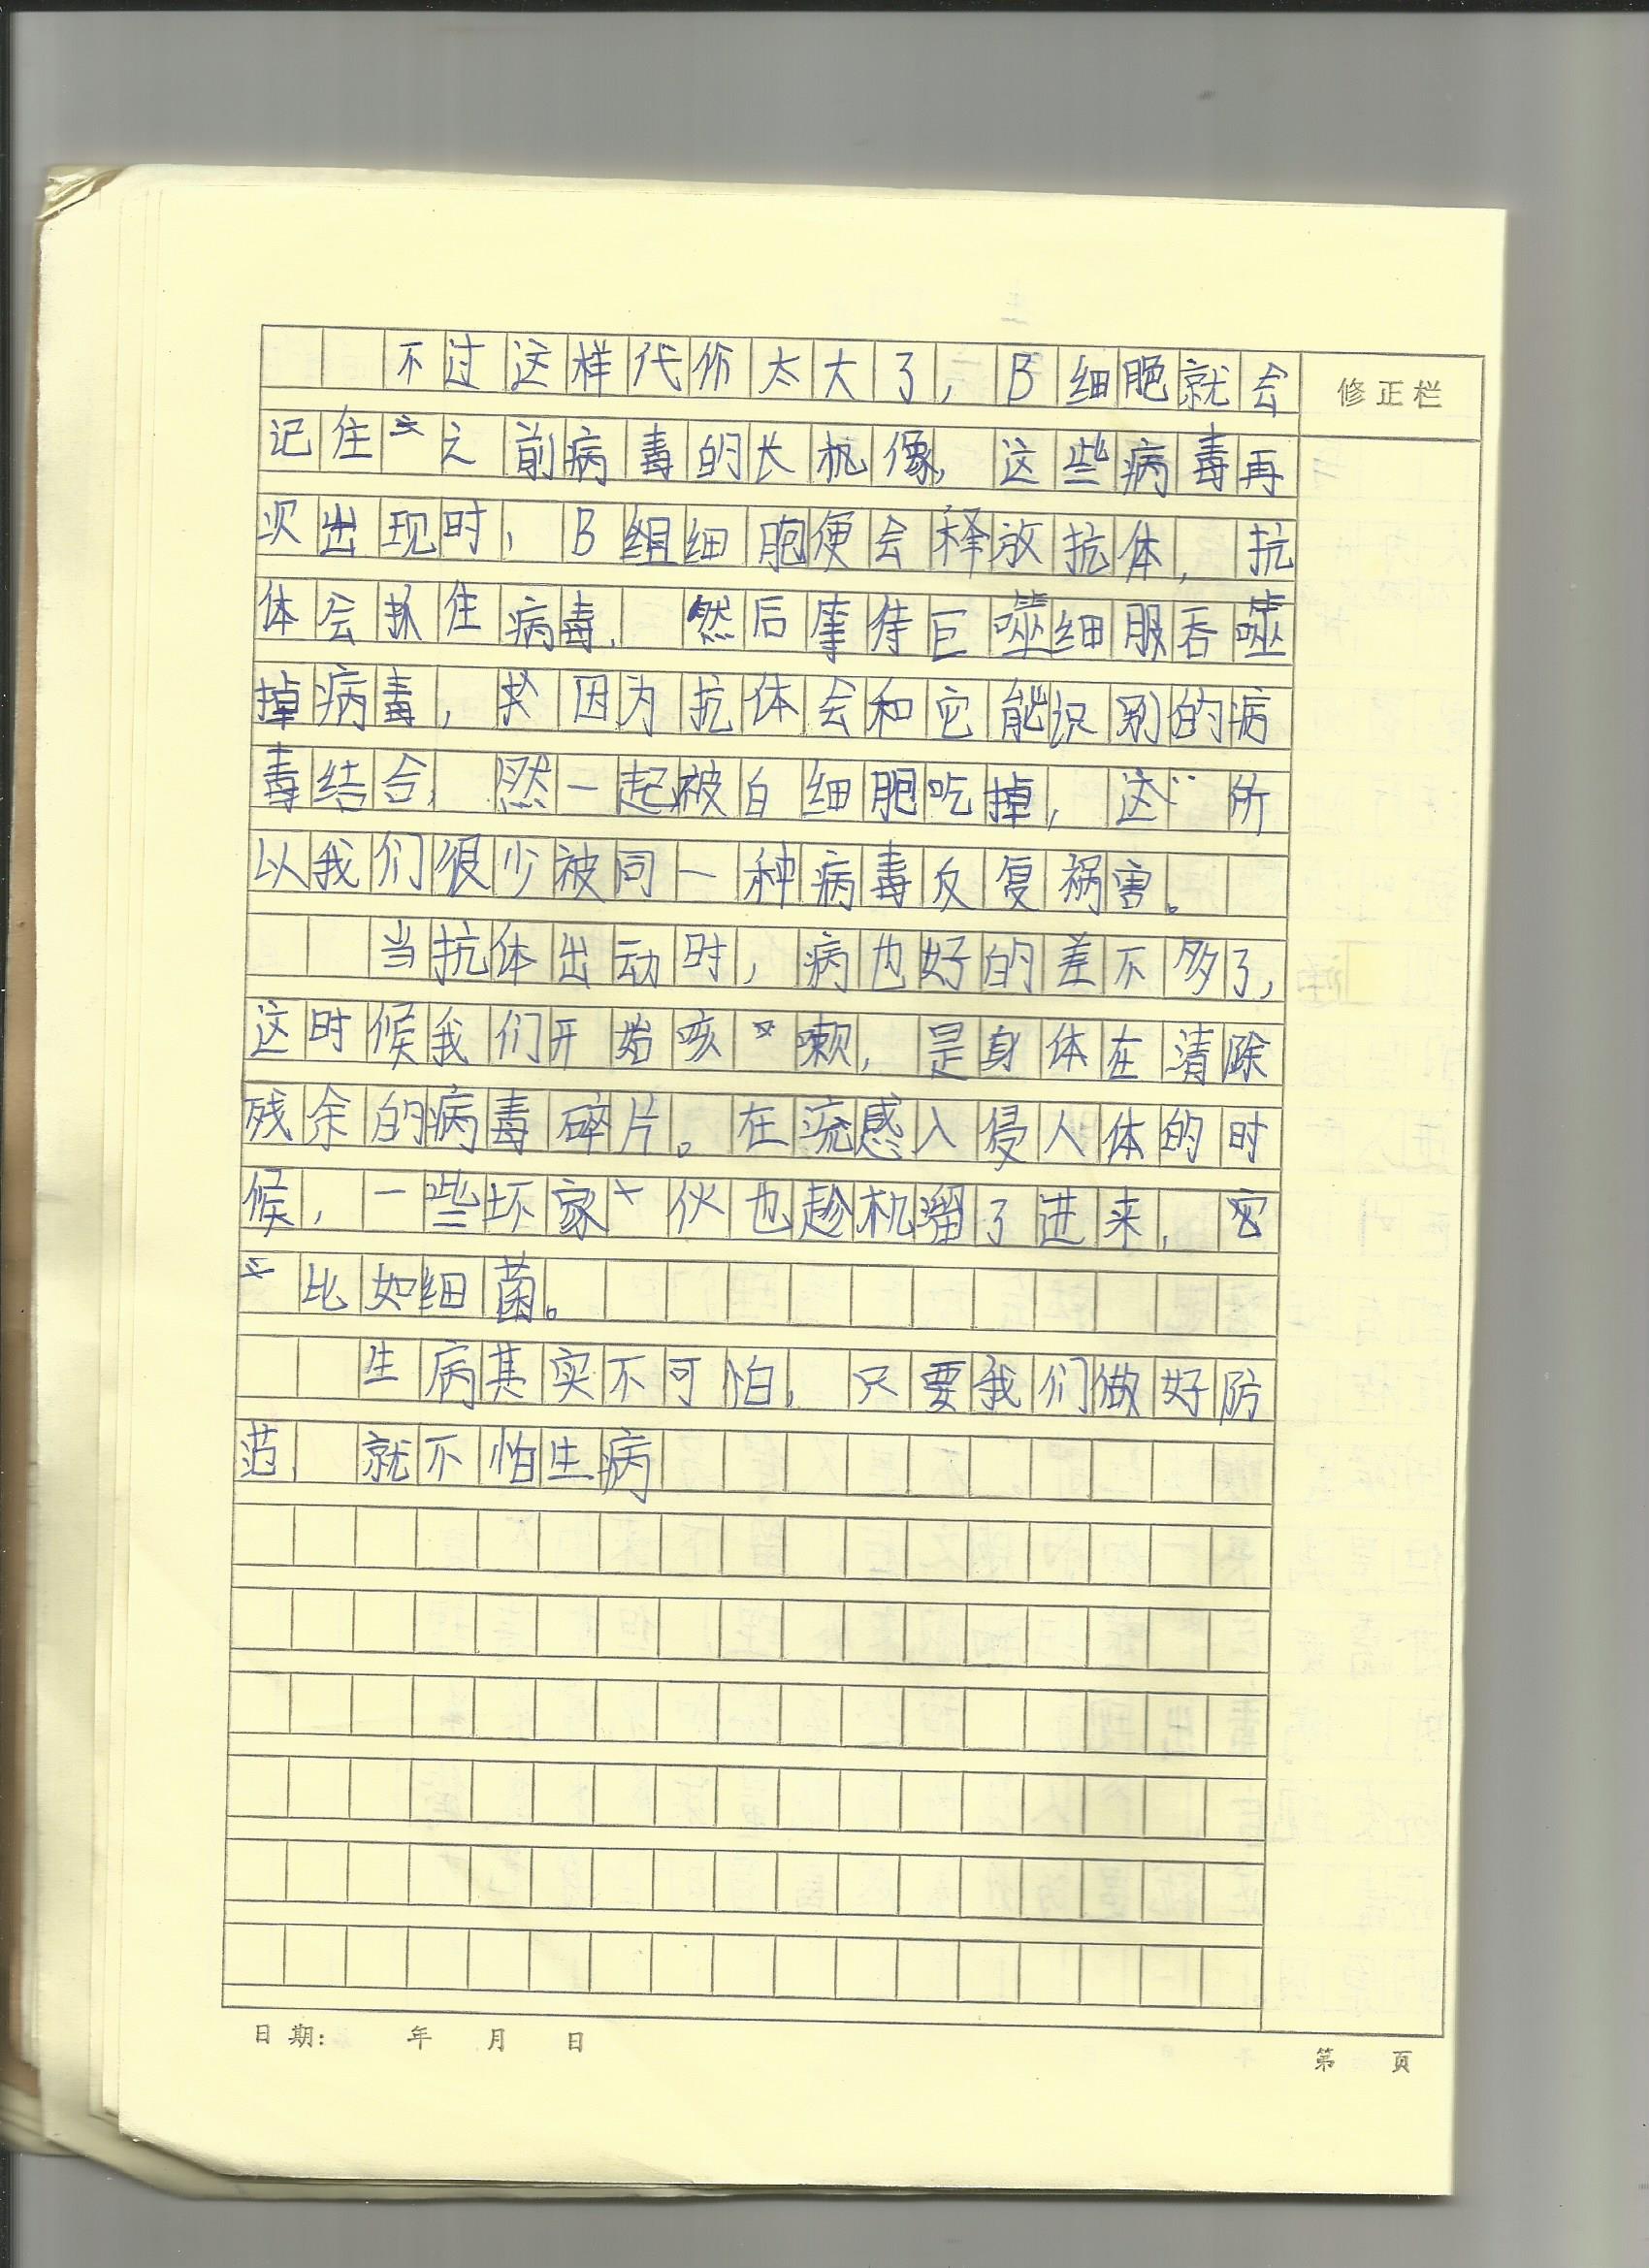 不过这样代价太大了，B细胞就会
修正栏
记住之前病毒的长相像，这些病毒再
次出现时，B组细胞便会释放抗体，抗
体会抓住病毒，然后等待巨噬细胞吞噬
掉病毒，因为抗体会和它能识别的病
毒结合，然一起被白细胞吃掉，这所
以我们很少被同一种病毒反复祸害。
当抗体出动时，病也好的差不多了，
这时候我们开始咳嗽，是身体在清除
残余的病毒碎片。在流感入侵人体的时
候，一些坏家伙也趁机溜了进来，
比如细菌。
生病其实不可怕，只要我们做好防
范，就不怕生病
日期： 年 月 日
第 页